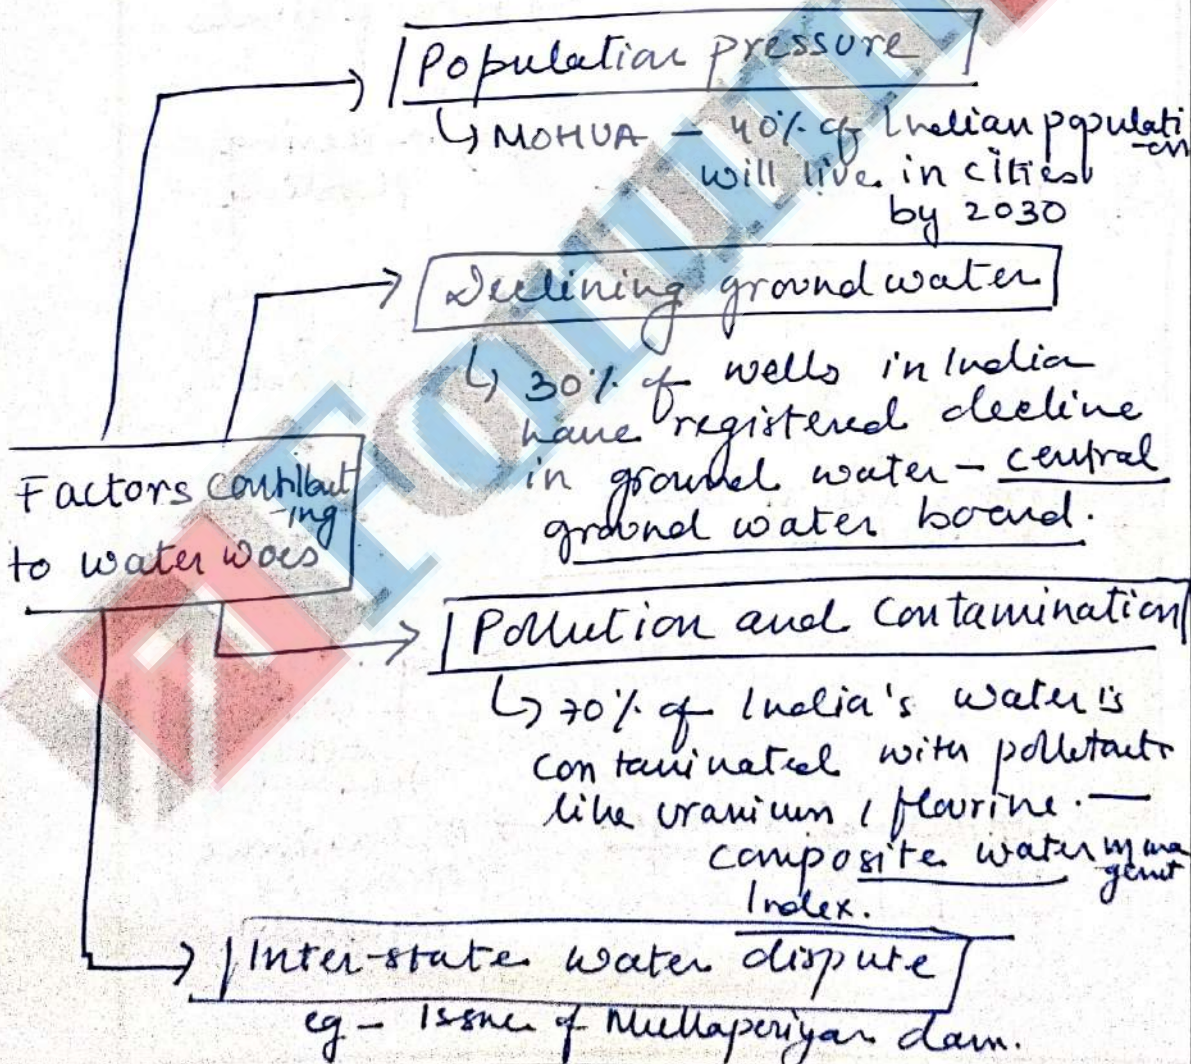 Population pressure
↳ MOHUA - 40% of Indian populati
-on
will live in cities
by 2030
Declining ground water
↳ 30% of wells in India
have registered decline
in ground water - central
ground water board.
Factors contribut
-ing
to water woes
Pollution and Contamination
↳ 70% of India's water is
contaminated with pollutants
like uranium, flourine. —
composite water mana
gemt
Index.
Inter-state water dispute
eg - Issue of Mullaperiyar dam.
Forum